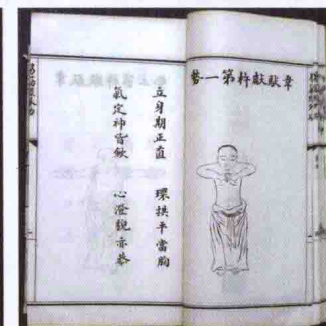 韋馱獻杵第一勢
立身期正直 環拱平當胸
氣定神皆斂 心澄貌亦恭